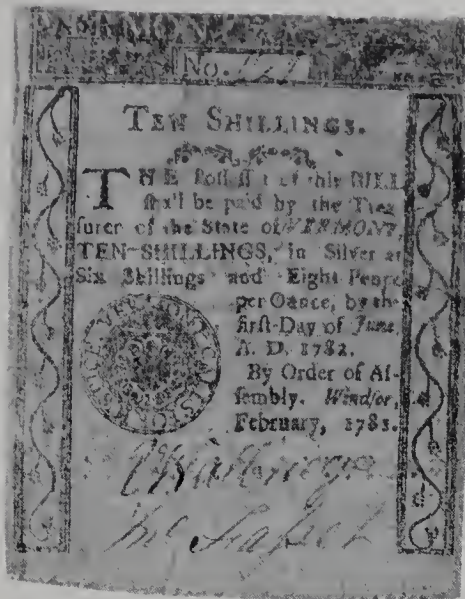 No.
TEN SHILLINGS.
THE Possessor of this BILL
shall be paid by the Trea-
surer of the State of VERMONT,
TEN-SHILLINGS, in Silver at
Six Shillings and Eight Pence
per Ounce, by the
first Day of June,
A. D. 1782.
By Order of As-
sembly. Windsor,
February, 1781.